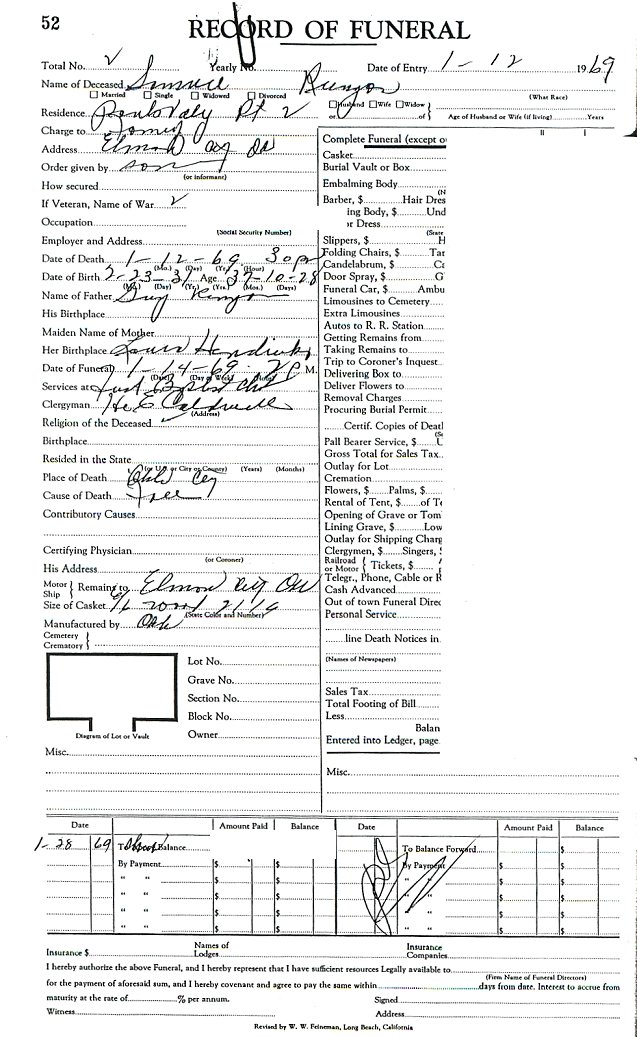 52
RECORD OF FUNERAL
Total No. Yearly No. Date of Entry 1-12 1969
Name of Deceased Runyon
Married Single Widowed Divorced
(What Race)
Residence Pt 2 Husband Wife Widow or of
Age of Husband or Wife (if living) Years
Charge to
Address
Order given by son
(or informant)
How secured
If Veteran, Name of War
Occupation
(Social Security Number)
Employer and Address
Date of Death 1-12-69
(Mo.) (Day) (Yr.) (Hour)
Date of Birth 2-23-31 Age 37-10-28
(Mo.) (Day) (Yr.) (Yrs.) (Mos.) (Days)
Name of Father Guy Runyon
His Birthplace
Maiden Name of Mother
Her Birthplace
Date of Funeral 1-14-69 2 P M.
(Date) (Day of Week) (Hour)
Services at
Clergyman H.E. Caldwell
(Address)
Religion of the Deceased
Birthplace
Resided in the State
(or U.S. or City or County) (Years) (Months)
Place of Death
Cause of Death
Contributory Causes
Certifying Physician
(or Coroner)
His Address
Motor Ship Remains to
Size of Casket
(State Color and Number)
Manufactured by
Cemetery
Crematory
Lot No.
Grave No.
Section No.
Block No.
Owner
Diagram of Lot or Vault
Misc.
Complete Funeral (except o
Casket
Burial Vault or Box
(N
Embalming Body
Barber, $ Hair Dres
ing Body, $ Und
or Dress
(State
Slippers, $ H
Folding Chairs, $ Tar
Candelabrum, $ Ca
Door Spray, $ G
Funeral Car, $ Ambu
Limousines to Cemetery
Extra Limousines
Autos to R. R. Station
Getting Remains from
Taking Remains to
Trip to Coroner's Inquest
Delivering Box to
Deliver Flowers to
Removal Charges
Procuring Burial Permit
Certif. Copies of Deat
(St
Pall Bearer Service, $
Gross Total for Sales Tax
Outlay for Lot
Cremation
Flowers, $ Palms, $
Rental of Tent, $ of Te
Opening of Grave or Tom
Lining Grave, $ Low
Outlay for Shipping Charg
Clergymen, $ Singers,
Railroad or Motor Tickets, $
Telegr., Phone, Cable or R
Cash Advanced
Out of town Funeral Direc
Personal Service
line Death Notices in
(Names of Newspapers)
Sales Tax
Total Footing of Bill
Less
Balan
Entered into Ledger, page
Misc.
Date Amount Paid Balance Date Amount Paid Balance
1-28 69 To Balance To Balance Forward $
By Payment $ $ By Payment $ $
" " $ $ " " $ $
" " $ $ " " $ $
" " $ $ " " $ $
" " $ $ " " $ $
Insurance $ Names of Lodges Insurance Companies
I hereby authorize the above Funeral, and I hereby represent that I have sufficient resources Legally available to
(Firm Name of Funeral Directors)
for the payment of aforesaid sum, and I hereby covenant and agree to pay the same within days from date. Interest to accrue from
maturity at the rate of % per annum. Signed
Witness Address
Revised by W. W. Feineman, Long Beach, California